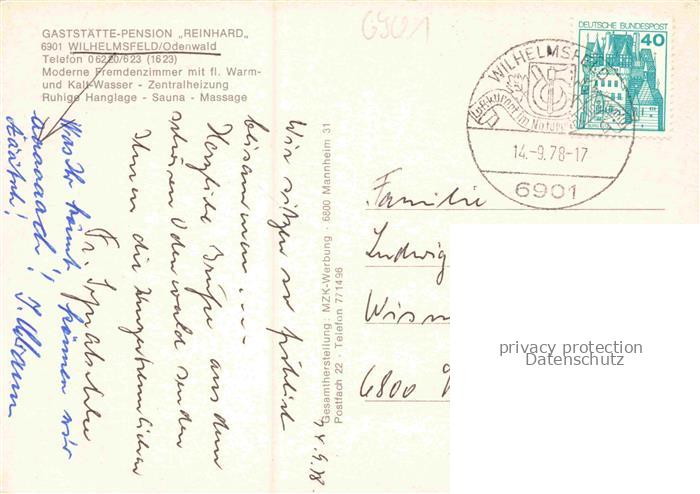 GASTSTÄTTE-PENSION „REINHARD„
6901 WILHELMSFELD/Odenwald
Telefon 06220/623 (1623)
Moderne Fremdenzimmer mit fl. Warm-
und Kalt-Wasser - Zentralheizung
Ruhige Hanglage - Sauna - Massage
6901
DEUTSCHE BUNDESPOST
40
WILHELMSFELD
Luftkurort im Naturpark
14.-9.78-17
6901
14.9.78.
Wir sitzen so fröhlich
beisammen ...
Herzliche Grüße aus dem
schönen Odenwald senden
Ihnen die Unzertrennlichen
Fr.
Was Ihr könnt können wir
aaaaach!
ääätsch!
Gesamtherstellung: MZK-Werbung · 6800 Mannheim 31
Postfach 22 · Telefon 771496
Familie
Ludwig
6800
privacy protection
Datenschutz